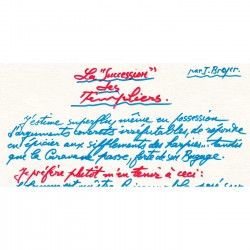 La "Succession"
des
Templiers.
par J. Breyer.
J'estime superflu, même en possession
d'arguments concrets irréfutables, de répondre
en épicier aux sifflements des harpies... tandis
que la Caravane passe, forte de son Bagage.
Je préfère plutôt m'en tenir à ceci :